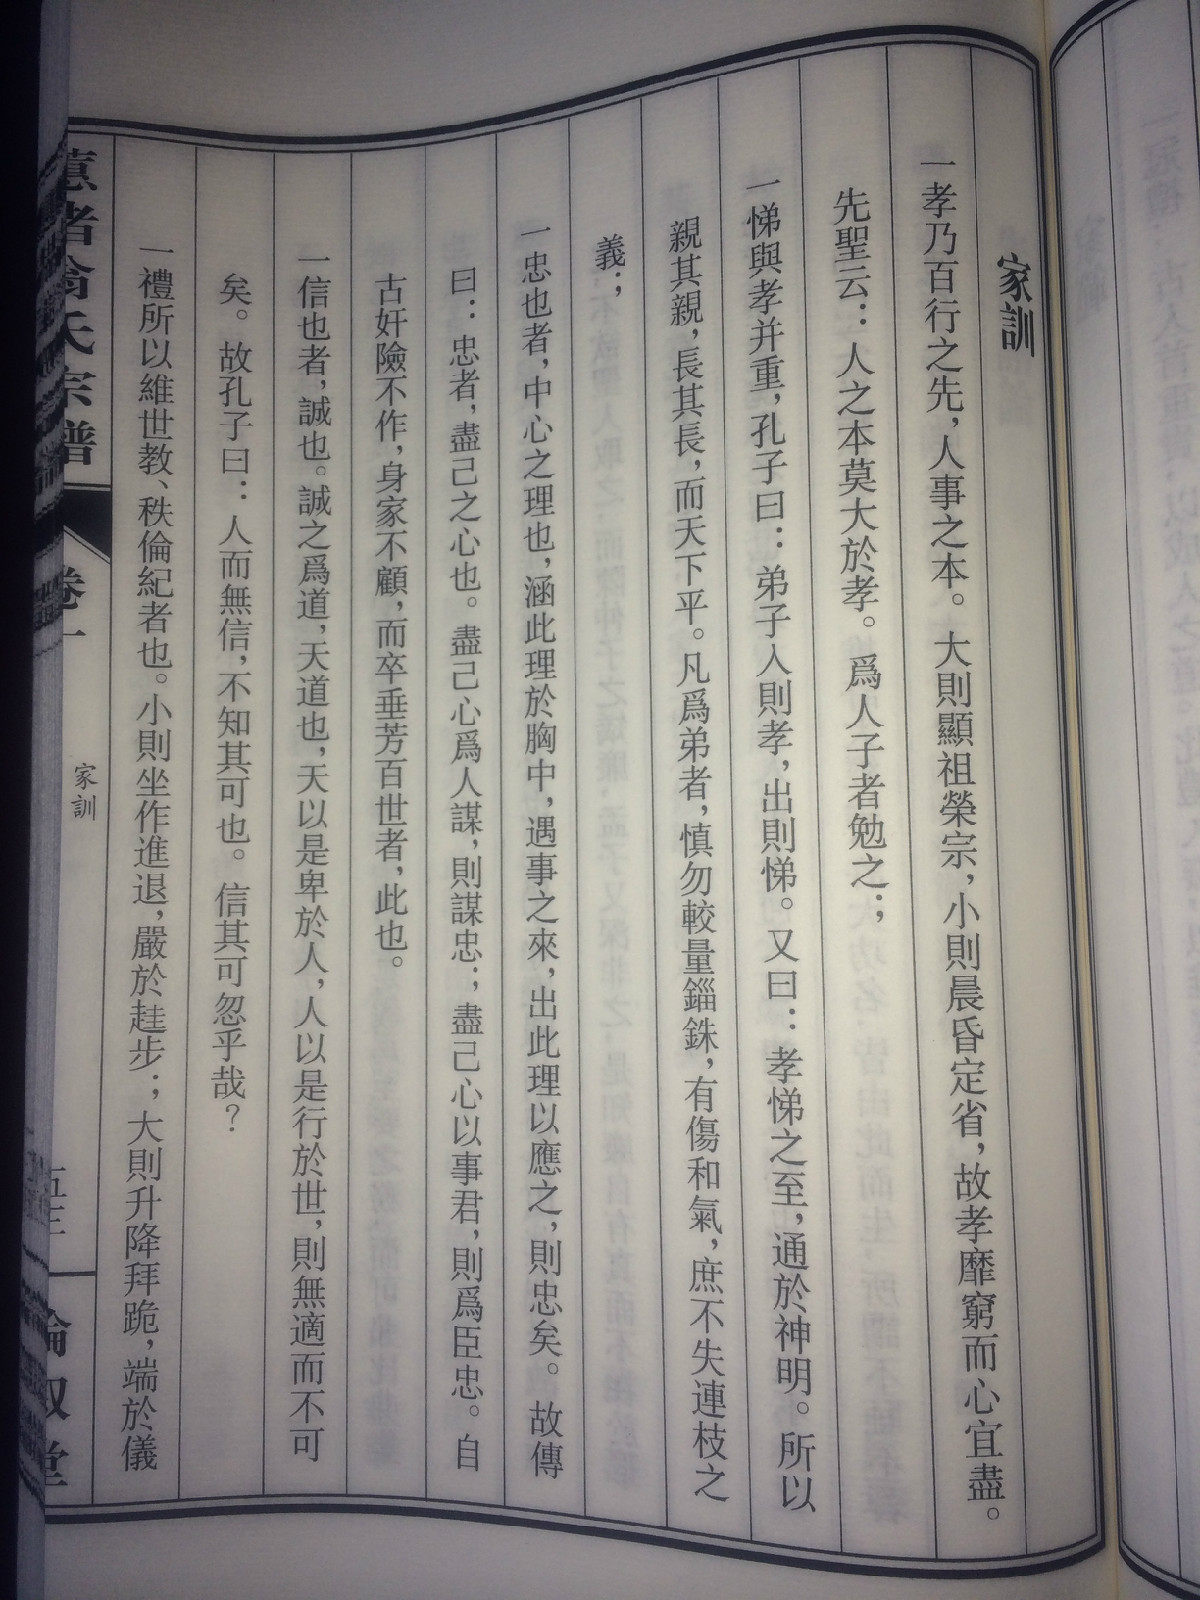 家訓
一孝乃百行之先，人事之本。大則顯祖榮宗，小則晨昏定省，故孝靡窮而心宜盡。
先聖云：人之本莫大於孝。爲人子者勉之；
一悌與孝并重，孔子曰：弟子入則孝，出則悌。又曰：孝悌之至，通於神明。所以
親其親，長其長，而天下平。凡爲弟者，慎勿較量錙銖，有傷和氣，庶不失連枝之
義；
一忠也者，中心之理也，涵此理於胸中，遇事之來，出此理以應之，則忠矣。故傳
曰：忠者，盡己之心也。盡己心爲人謀，則謀忠；盡己心以事君，則爲臣忠。自
古奸險不作，身家不顧，而卒垂芳百世者，此也。
一信也者，誠也。誠之爲道，天道也，天以是卑於人，人以是行於世，則無適而不可
矣。故孔子曰：人而無信，不知其可也。信其可忽乎哉？
一禮所以維世教、秩倫紀者也。小則坐作進退，嚴於趌步；大則升降拜跪，端於儀
翁氏宗譜
卷一
家訓
五三
堂